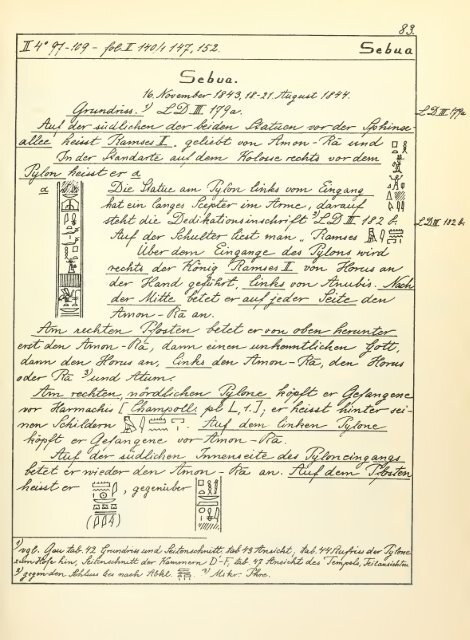 83.
II 4° 97-109 - fol. II 140/1 147, 152.
Sebua
Sebua.
16. November 1843, 18-21. August 1844.
Grundriss. 1) LD III. 179a.
LD III 179a
Auf der südlichen der beiden Statuen vor der Sphinx-
allee heisst Ramses II, geliebt von Amon-Rā und
In der Standarte auf dem Koloss rechts vor dem
Pylon heisst er a
a
Die Statue am Pylon links vom Eingang
hat ein langes Scepter im Arme, darauf
steht die Dedikationsinschrift 2) LD III 182 b.
LD III 182 b.
Auf der Schulter liest man „Ramses
Über dem Eingange des Pylons wird
rechts der König Ramses II von Horus an
der Hand geführt, links von Anubis. Nach
der Mitte betet er auf jeder Seite den
Amon-Rā an.
Am rechten Pfosten betet er von oben herunter
erst den Amon-Rā, dann einen unkenntlichen Gott,
dann den Horus an, links den Amon-Rā, den Horus
oder Rā 3) und Atum.
Am rechten, nördlichen Pylone köpft er Gefangene
vor Harmachis [Champoll. pl L, 1.]; er heisst hinter sei-
nen Schildern Auf dem linken Pylone
köpft er Gefangene vor Amon-Rā.
Auf der südlichen Innenseite des Pyloneingangs
betet er wieder den Amon-Rā an. Auf dem Pfosten
heisst er , gegenüber
1) vgl. Gau tab. 42 Grundriss und Seitenschnitt, tab 43 Ansicht, tab. 44 Aufriss der Pylone
zum Hofe hin, Seitenschnitt der Kammern D-F, tab 47 Ansicht des Tempels, Teilansichten
3) gegen den Schluss bei nach Abkl. 2) Mskr.